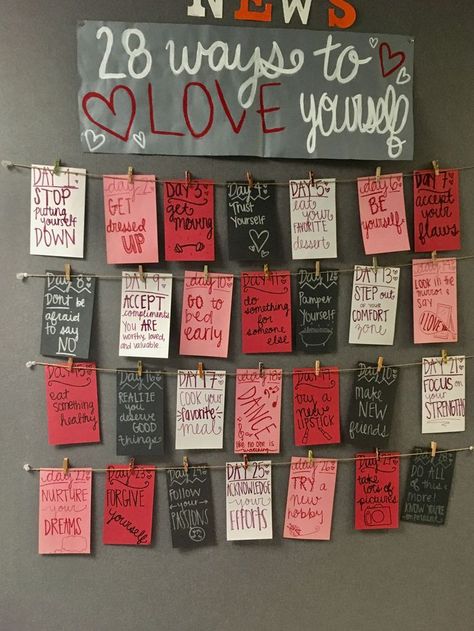 NEWS
28 ways to
LOVE yourself
DAY 1
STOP
putting
yourself
DOWN
day 2
GET
dressed
UP
Day 3
get
moving
Day 4
Trust
Yourself
Day 5
eat
your
FAVORITE
dessert
Day 6
BE
yourself
Day 7
accept
your
flaws
Day 8
Don't be
afraid
to say
NO
DAY 9
ACCEPT
compliments
YOU ARE
worthy, loved,
and valuable
Day 10
Go to
bed
early
Day 11
do
something
FOR
someone
else
Day 12
Pamper
Yourself
DAY 13
STEP out
OF YOUR
comfort
zone
Look in
the mirror
& say
Day 15
eat
something
healthy
Day 16
REALIZE
you
deserve
GOOD
things
DAY 17
COOK
your
favorite
meal
Day 18
DANCE
like no one is
watching
Day 19
try a
new
lipstick
Day 20
MAKE
NEW
friends
DAY 21
FOCUS
on your
STRENGTHS
Day 22
NURTURE
your
DREAMS
Day 23
FORGIVE
yourself
Day 24
Follow
your
PASSIONS
DAY 25
ACKNOWLEDGE
your
EFFORTS
Day 26
TRY A
new
hobby
Day 27
take
lots of
pictures
Day 28
do ALL
of this &
more!